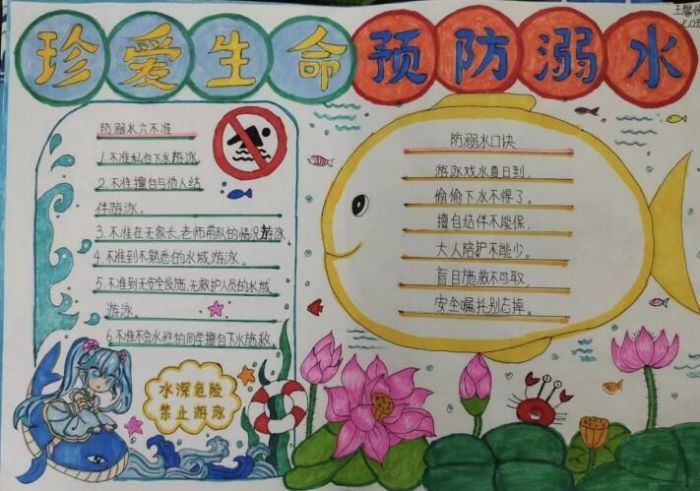 珍爱生命预防溺水
防溺水六不准
1.不准私自下水游泳
2.不准擅自与他人结
伴游泳。
3.不准在无家长、老师带队的情况游泳
4.不准到不熟悉的水域游泳。
5.不准到无安全设施、无救护人员的水域
游泳。
6.不准不会水性的同学擅自下水施救
水深危险
禁止游泳
防溺水口诀
游泳戏水夏日到，
偷偷下水不得了。
擅自结伴不能保，
大人陪护不能少。
盲目施救不可取，
安全嘱托别忘掉。